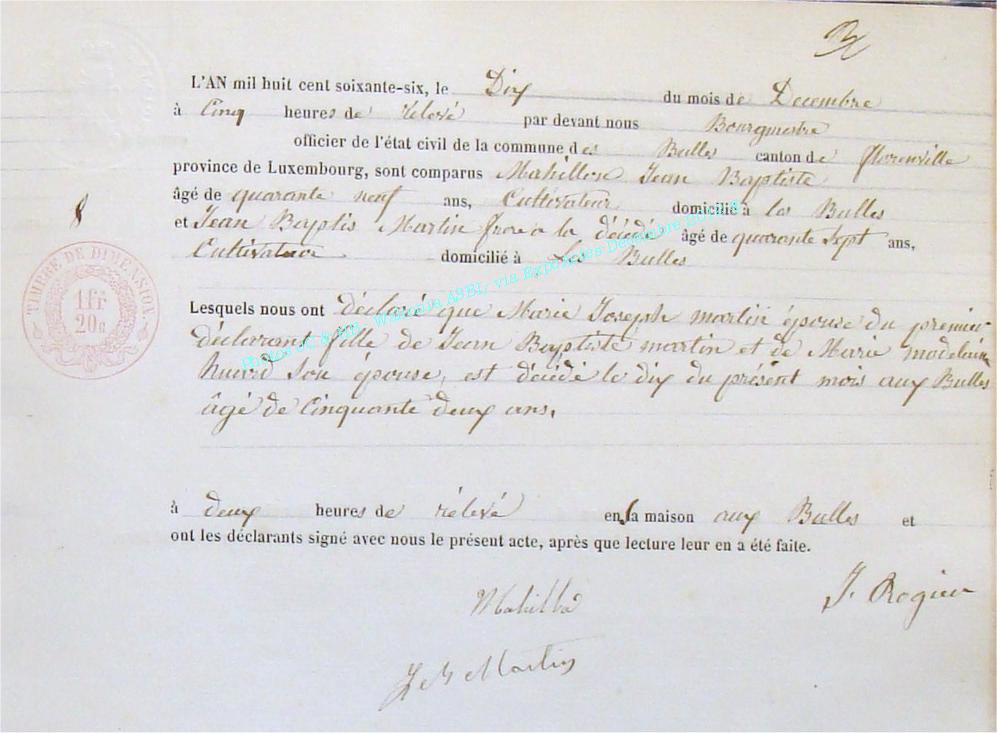 L'AN mil huit cent soixante-six, le Dix du mois de Decembre
à Cinq heures de rélevé par devant nous Bourgmestre
officier de l'état civil de la commune des Bulles canton de florenville
province de Luxembourg, sont comparus Mahillon Jean Baptiste
âgé de quarante neuf ans, Cultivateur domicilié à les Bulles
et Jean Baptis Martin frere a la décédé âgé de quarante sept ans,
Cultivateur domicilié à Les Bulles
8
TIMBRE DE DIMENSION
1 Fr
20 c
Lesquels nous ont déclaré que Marie Joseph martin épouse du premier
déclarant fille de Jean Baptiste martin et de Marie modelaine
huard Son épouse, est décédé le dix du présent mois aux Bulles
âgé de Cinquante deux ans.
à deux heures de rélevé en la maison aux Bulles et
ont les déclarants signé avec nous le présent acte, après que lecture leur en a été faite.
J. Rogier
J B Martin